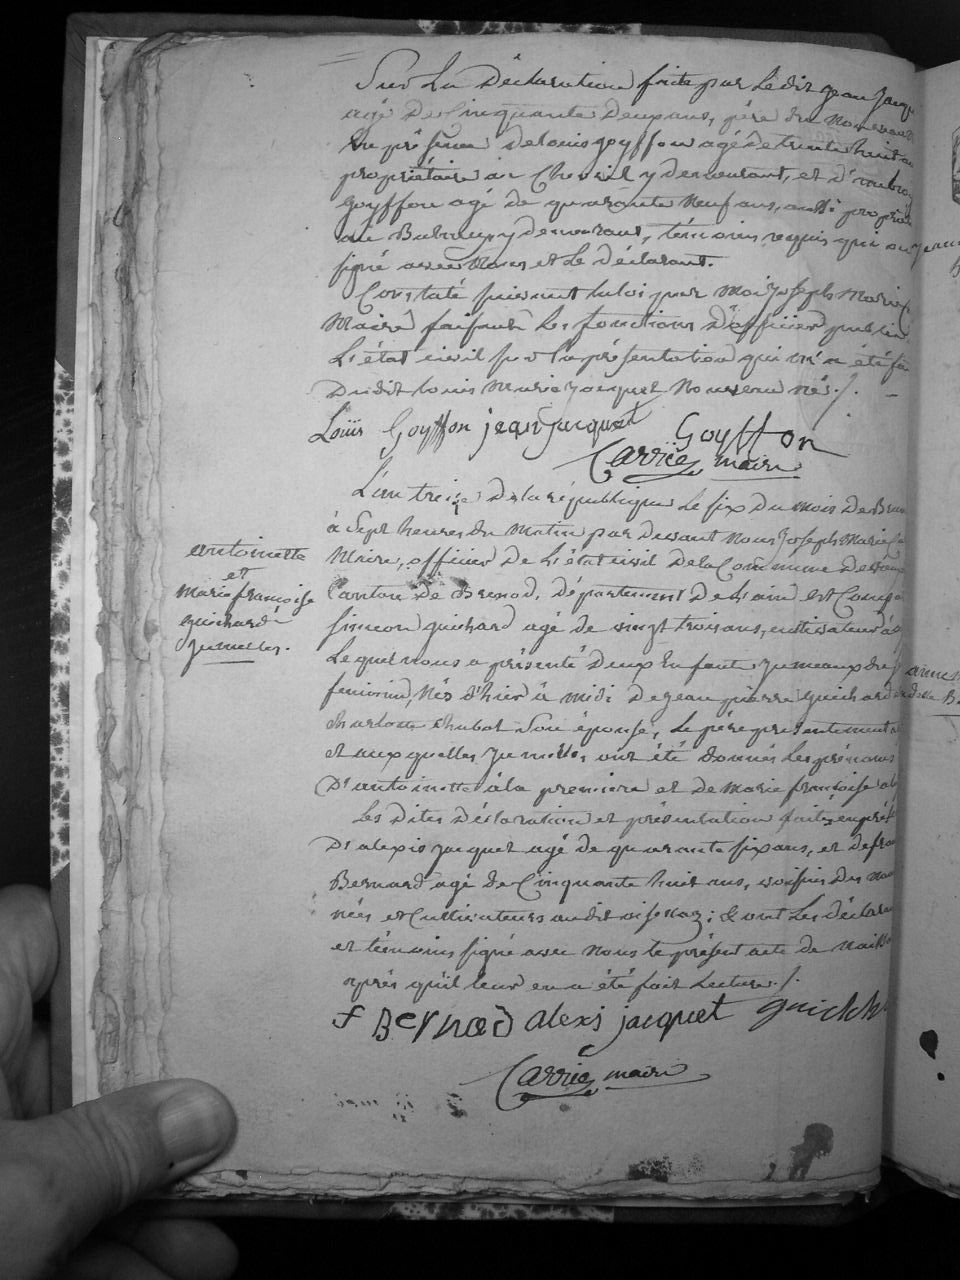 Sur La Déclaration faite par Ledit jean jacqu
agé De Cinquante Deux ans, père du nouveau
En présence De Louis goyffon agé de trente huit an
propriétaire au Chevril y demeurant, et d'ambroi
goyffon agé de quarante neuf ans, aussi propriét
au y demeurant, témoins requis qui on
signé avec Nous et Le Déclarant.
Constaté suivant la loi par Moi joseph Marie C
Maire faisant Les fonctions D'officier public
L'état civil sur la présentation qui m'a été fa
Dudit Louis Marie jacquet Nouveau nés./.
Loüis Goyffon jean jacquet Goyffon
Carrié maire
L'an treize de la république Le six Du mois De Brum
à Sept heures du Matin par devant Nous Joseph Marie Ca
Maire, officier De L'état civil De la Commune De
antoinette
et
marie françoise
guichard
jumelles.
Canton de Brenod, Département De L'ain est Compa
simeon guichard agé de vingt trois ans, cultivateur à
Lequel nous a présenté Deux Enfant jumeaux du
feminin, Nés d'hier à midi De jean pierre guichard et de
charlotte chubot Son épouse, Le père présentement
et auxquelles jumelles ont été donnés Les prénoms
D'antoinette à la premiere et de Marie françoise a la
Les Dites Déclaration et présentation faites en prés
D'alexis jacquet agé de quarante six ans, et de fra
Bernard agé de Cinquante huit ans, voisins Des nou
nés et Cultivateurs audit ; & ont Les déclara
et témoins signé avec Nous le présent acte de Naissa
après qu'il leur en a été fait Lecture./.
f Bernard alexis jacquet guich
Carrié maire